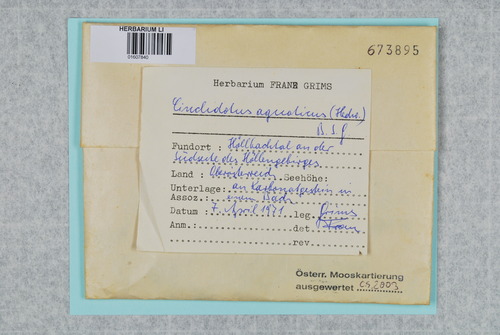 HERBARIUM LI
01607840
673895
Herbarium FRANZ GRIMS
Cinclidotus aquaticus (Hedw.)
B.S.G
Fundort : Höllbachtal an der
Südseite des Höllengebirges
Land : Oberösterreich Seehöhe:
Unterlage: an Karbonatgestein in
Assoz.: einem Bach
Datum : 7. April 1971 leg. Grims
Anm.: det. Franz
rev.
Österr. Mooskartierung
ausgewertet CS 2003